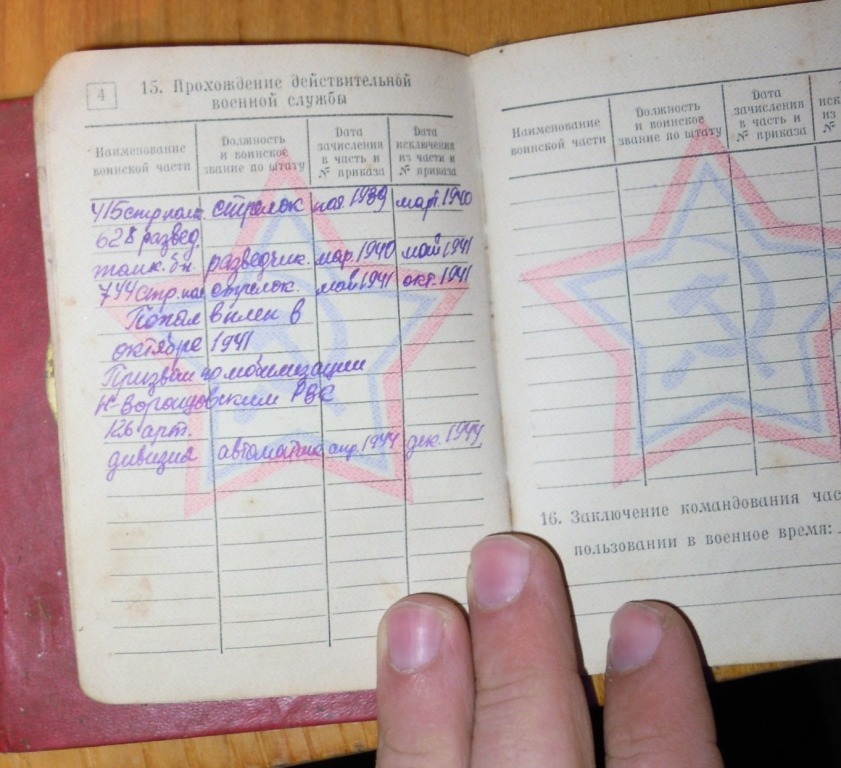 4
15. Прохождение действительной
военной службы
Наименование воинской части
Должность и воинское звание по штату
Дата зачисления в часть и № приказа
Дата исключения из части и № приказа
415 стр. стрелок 1939 март 1940
628 развед.
разведчик. мар. 1940 май 1941
744 стр. стрелок. май 1941 окт. 1941
Попал в плен в
октябре 1941
Призван по мобилизации
РВК
арт.
дивизия автоматчик апр. 1944 дек. 1944
Наименование воинской части
Должность и воинское звание по штату
Дата зачисления в часть и № приказа
из
№
16. Заключение командования
пользовании в военное время: